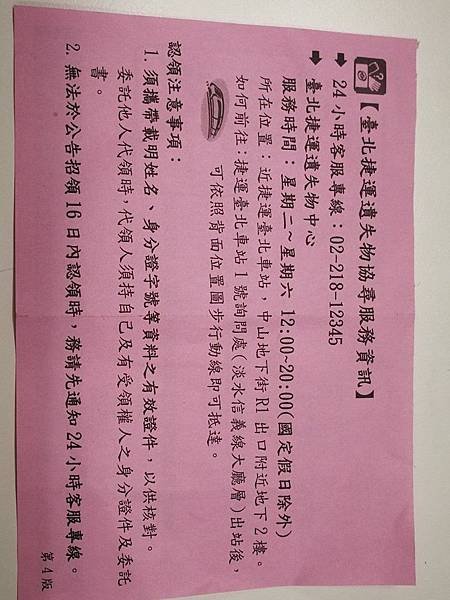 【臺北捷運遺失物協尋服務資訊】
➡ 24小時客服專線：02-218-12345
➡ 臺北捷運遺失物中心
服務時間：星期二~星期六 12:00~20:00(國定假日除外)
所在位置：近捷運臺北車站，中山地下街R1出口附近地下2樓。
如何前往：捷運臺北車站1號詢問處(淡水信義線大廳層)出站後，
可依照背面位置圖步行動線即可抵達。
認領注意事項：
1. 須攜帶載明姓名、身分證字號等資料之有效證件，以供核對。
委託他人代領時，代領人須持自己及有受領權人之身分證件及委託
書。
2. 無法於公告招領16日內認領時，務請先通知24小時客服專線。
第4版